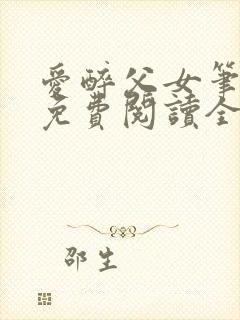 愛醉父女筆
免費閱讀全
邵生